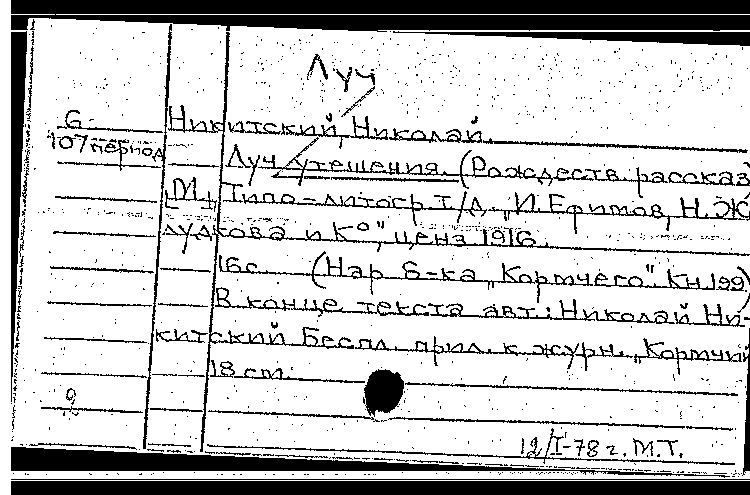 Луч
6
107 период
Никитский, Николай.
Луч утешения. (Рождеств. рассказ)
[М.], Типо-литогр. Т/Д. „И. Ефимов, Н. Ж
лудкова и К°", ценз 1916.
16 с. (Нар Б-ка „Кормчего". Кн 199)
В конце текста авт.: Николай Ни-
китский Беспл. прил. к журн. „Кормчий
18 cm.
2
12/I-78 г. М.Т.